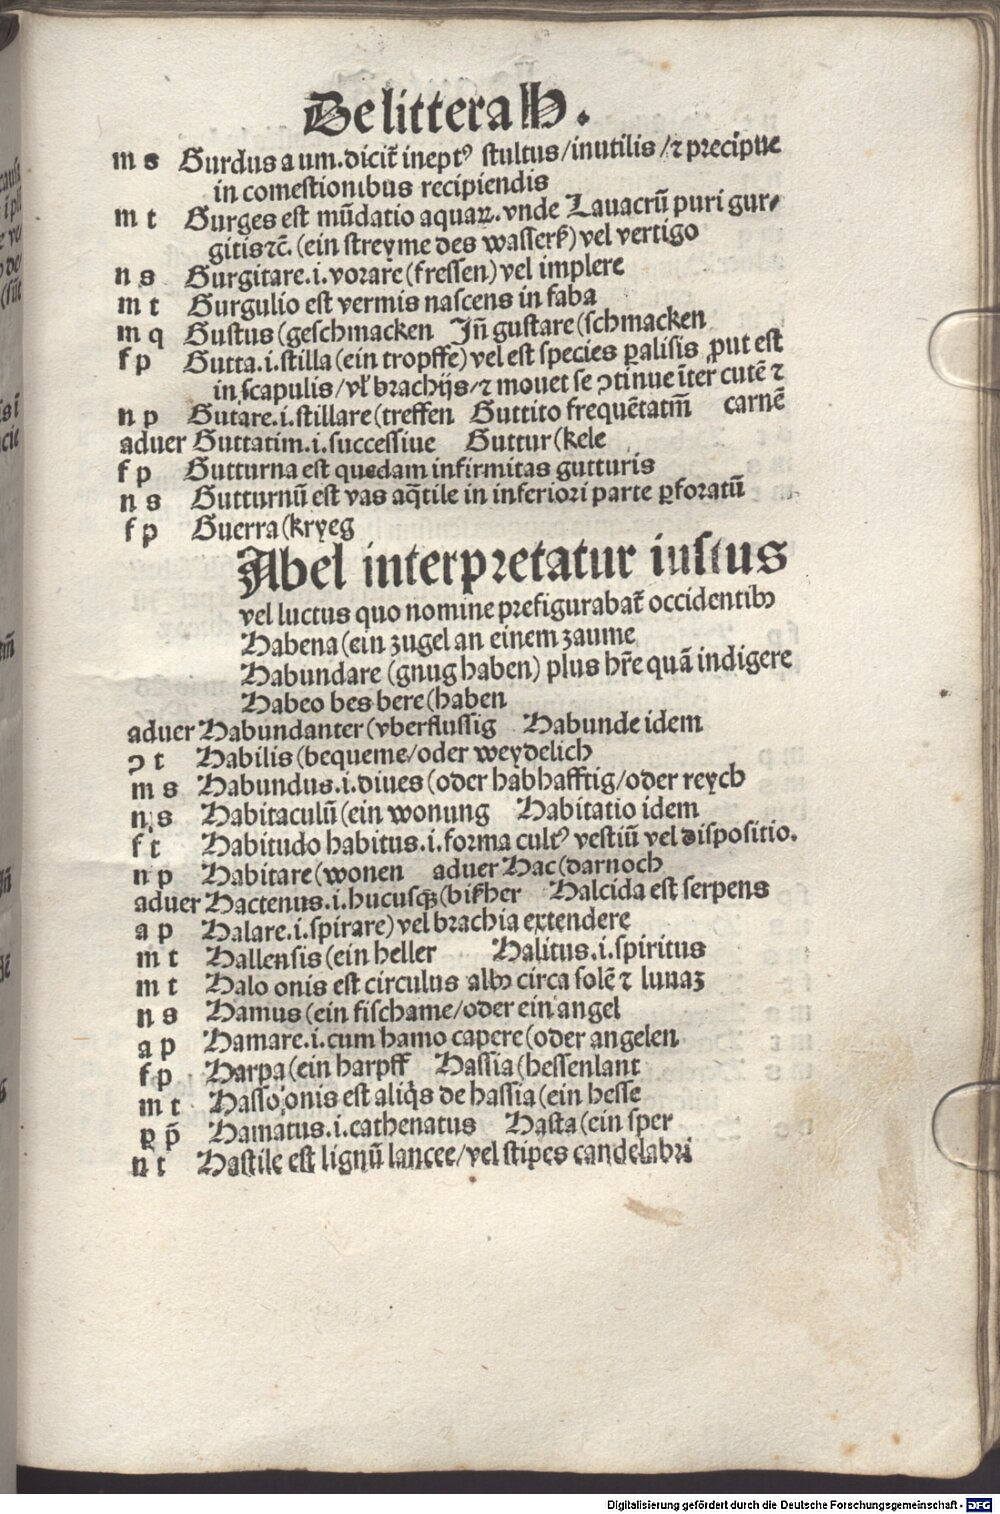 De littera H.
m s Gurdus a um. dicit̄ inept⁹ stultus/inutilis/⁊ precipue
in comestionibus recipiendis
m t Gurges est mūdatio aquaꝝ. vnde Lauacrū puri gur⸗
gitis ⁊c̄. (ein streyme des wasserſ) vel vertigo
n s Gurgitare .i. vorare (fressen) vel implere
m t Gurgulio est vermis nascens in faba
m q Gustus (geschmacken Jn̄ gustare (schmacken
f p Gutta .i. stilla (ein tropffe) vel est species ꝑalisis ꝓut est
in scapulis/vl̛ brachijs/⁊ mouet se ꝯtinue īter cutē ⁊
n p Gutare .i. stillare (treffen Guttito frequētatm̄ carnē
aduer Guttatim .i. successiue Guttur (kele
f p Gutturna est quedam infirmitas gutturis
n s Gutturnū est vas aq̄tile in inferiori parte ꝑforatū
f p Guerra (kryeg
Abel interpretatur iustus
vel luctus quo nomine prefigurabat̄ occidentibꝫ
Habena (ein zugel an einem zaume
Habundare (gnug haben) plus hr̄e quā indigere
Habeo bes bere (haben
aduer Habundanter (vberflussig Habunde idem
ꝯ t Habilis (bequeme/oder weydelich
m s Habundus .i. diues (oder habhafftig/oder reych
n s Habitaculū (ein wonung Habitatio idem
f t Habitudo habitus .i. forma cult⁹ vestiū vel dispositio.
n p Habitare (wonen aduer Hac (darnoch
aduer Hactenus .i. hucusqꝫ (biſher Halcida est serpens
a p Halare .i. spirare) vel brachia extendere
m t Hallensis (ein heller Halitus .i. spiritus
m t Halo onis est circulus albꝫ circa solē ⁊ lunaꝫ
n s Hamus (ein fischame/oder ein angel
a p Hamare .i. cum hamo capere (oder angelen
f p Harpa (ein harpff Hassia (hessenlant
m t Hasso onis est aliq̇s de hassia (ein hesse
ꝑ p̄ Hamatus .i. cathenatus Hasta (ein sper
n t Hastile est lignū lancee/vel stipes candelabri
Digitalisierung gefördert durch die Deutsche Forschungsgemeinschaft - DFG